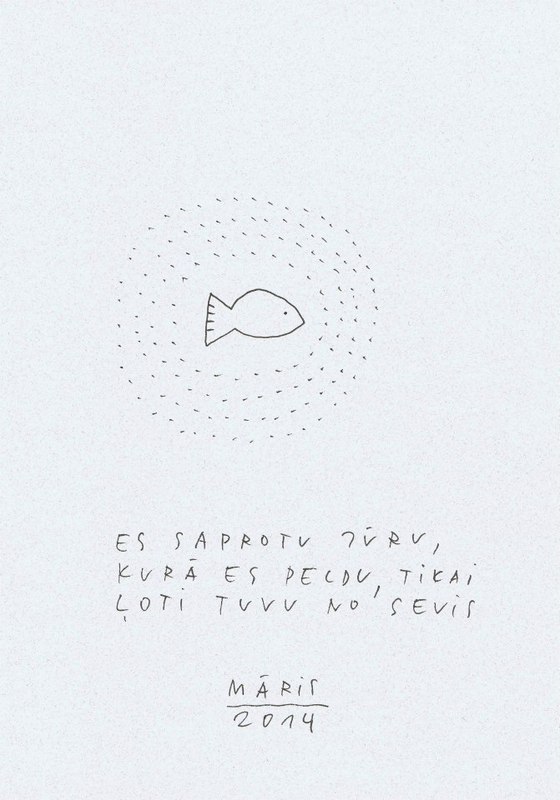 ES SAPROTU JŪRU,
KURĀ ES PELDU, TIKAI
ĻOTI TUVU NO SEVIS
MĀRIS
2014